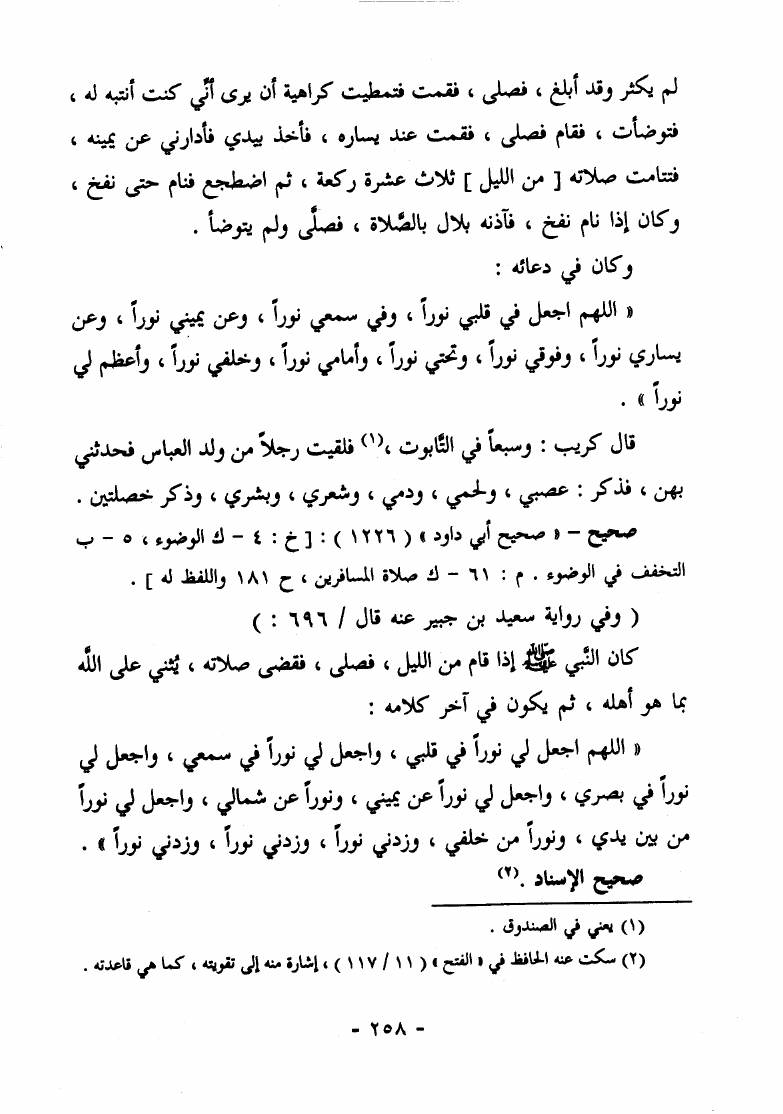 لم يكثر وقد أبلغ ، فصلى ، فقمت فتمطيت كراهية أن يرى أنّي كنت أنتبه له ،
فتوضأت ، فقام فصلى ، فقمت عند يساره ، فأخذ بيدي فأدارني عن يمينه ،
فتتامت صلاته [ من الليل ] ثلاث عشرة ركعة ، ثم اضطجع فنام حتى نفخ ،
وكان إذا نام نفخ ، فآذنه بلال بالصَّلاة ، فصلَّى ولم يتوضأ .
وكان في دعائه :
« اللهم اجعل في قلبي نوراً ، وفي سمعي نوراً ، وعن يميني نوراً ، وعن
يساري نوراً ، وفوقي نوراً ، وتحتي نوراً ، وأمامي نوراً ، وخلفي نوراً ، وأعظم لي
نوراً » .
قال كريب : وسبعاً في التَّابوت ،(١) فلقيت رجلاً من ولد العباس فحدثني
بهن ، فذكر : عصبي ، ولحمي ، ودمي ، وشعري ، وبشري ، وذكر خصلتين .
صحيح – « صحيح أبي داود » ( ١٢٢٦ ) : [ خ : ٤ – ك الوضوء ، ٥ – ب
التخفف في الوضوء . م : ٦١ – ك صلاة المسافرين ، ح ١٨١ واللفظ له ] .
( وفي رواية سعيد بن جبير عنه قال / ٦٩٦ : )
كان النَّبي ﷺ إذا قام من الليل ، فصلى ، فقضى صلاته ، يُثني على اللَّه
بما هو أهله ، ثم يكون في آخر كلامه :
« اللهم اجعل لي نوراً في قلبي ، واجعل لي نوراً في سمعي ، واجعل لي
نوراً في بصري ، واجعل لي نوراً عن يميني ، ونوراً عن شمالي ، واجعل لي نوراً
من بين يدي ، ونوراً من خلفي ، وزدني نوراً ، وزدني نوراً ، وزدني نوراً » .
صحيح الإسناد .(٢)
(١) يعني في الصندوق .
(٢) سكت عنه الحافظ في « الفتح » ( ١١ / ١١٧ ) ، إشارة منه إلى تقويته ، كما هي قاعدته .
- ٢٥٨ -